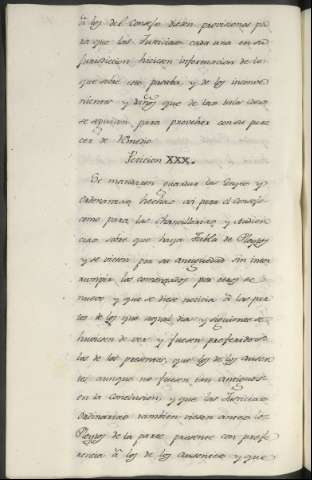 â los del Consejo diesen provisiones pa
ra que las Justicias cada una en su
Jurisdiccion hiciesen informacion de lo
que sobre esto pasaba y de los incomve
nientes y daños que de las tales cosas
se seguian para proveher con su pare
cer de Remedio
Peticion XXX.
Se mandasen guardar las Leyes y
ordenanzas hechas asi para el Consejo
como para las Chancillerias y Audien
cias sobre que haya Tabla de Pleytos
y se viesen por su antiguedad sin inter
rumpir los comenzados por otros de
nuevo y que se diese noticia â las par
tes de los que aquel dia y siguientes se
huviesen de ver y fuesen preferidos
los de los presentes, que los de los ausen
tes aunque no fuesen tan antiguos
en la conclusion y que las Justicias
ordinarias tambien viesen antes los
Pleytos de la parte presente con prefe
rencia â los de los ausentes y que